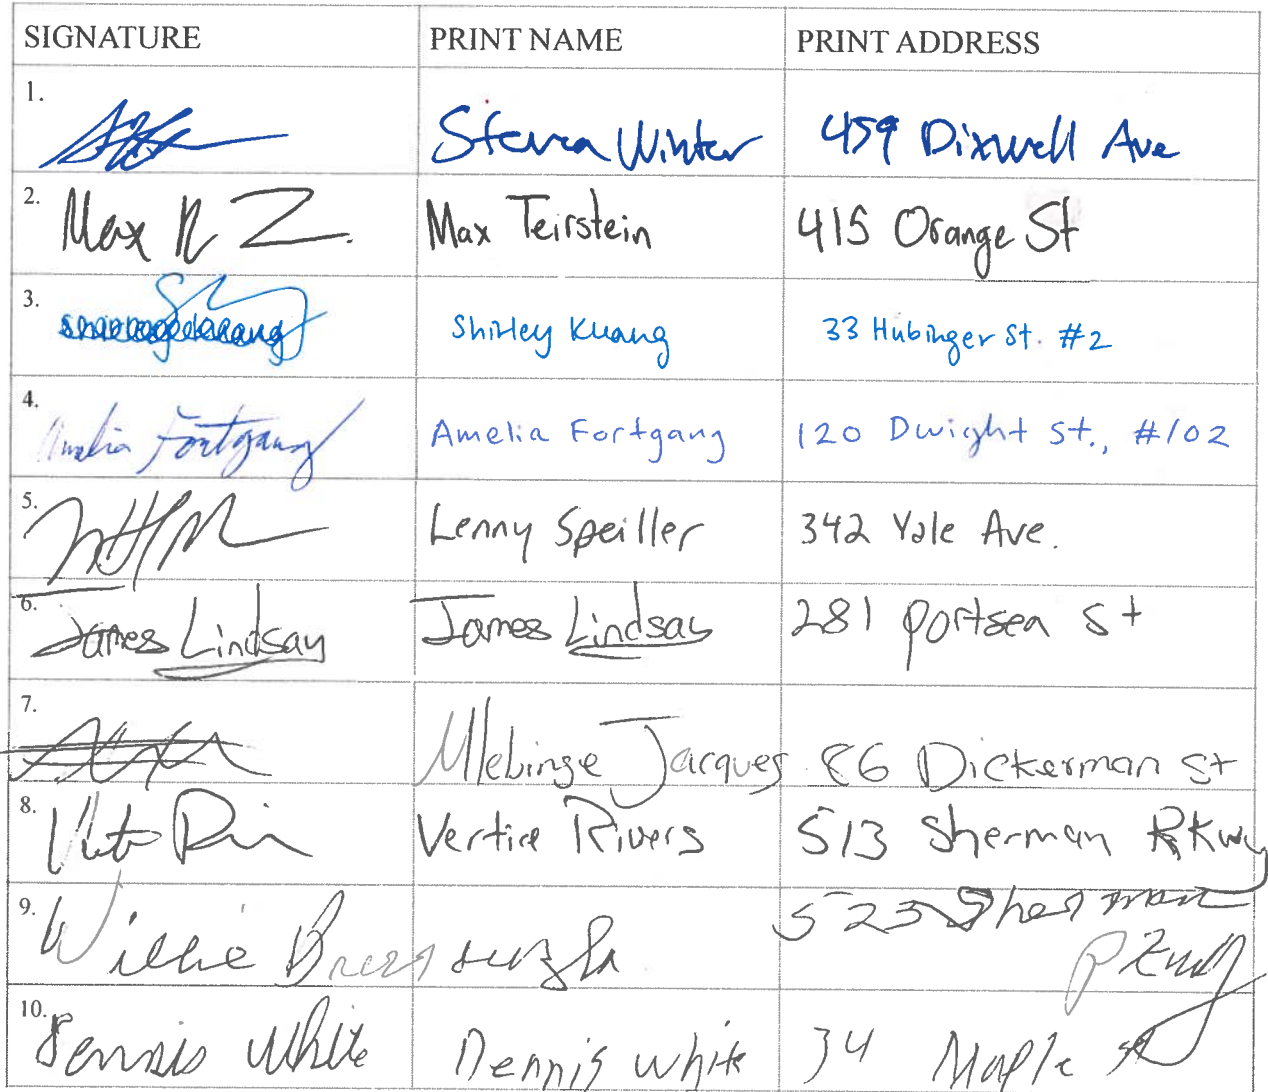 SIGNATURE PRINT NAME PRINT ADDRESS
1. Steven Winter 459 Dixwell Ave
2. Max R Z. Max Teirstein 415 Orange St
3. Shirley Kuang 33 Hubinger St. #2
4. Amelia Fortgang Amelia Fortgang 120 Dwight St., #102
5. Lenny Speiller 342 Yale Ave.
6. James Lindsay James Lindsay 281 portsea St
7. Jacques 86 Dickerman St
8. Vertice Rivers 513 Sherman PKwy
9. Willie 523 Sherman
Pkwy
10. Dennis White Dennis White 34 Maple St